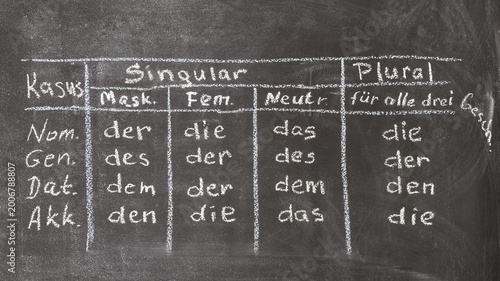 Kasus Singular Plural
Mask. Fem. Neutr. für alle drei Geschl.
Nom. der die das die
Gen. des der des der
Dat. dem der dem den
Akk. den die das die
Adobe Stock | #2006788807